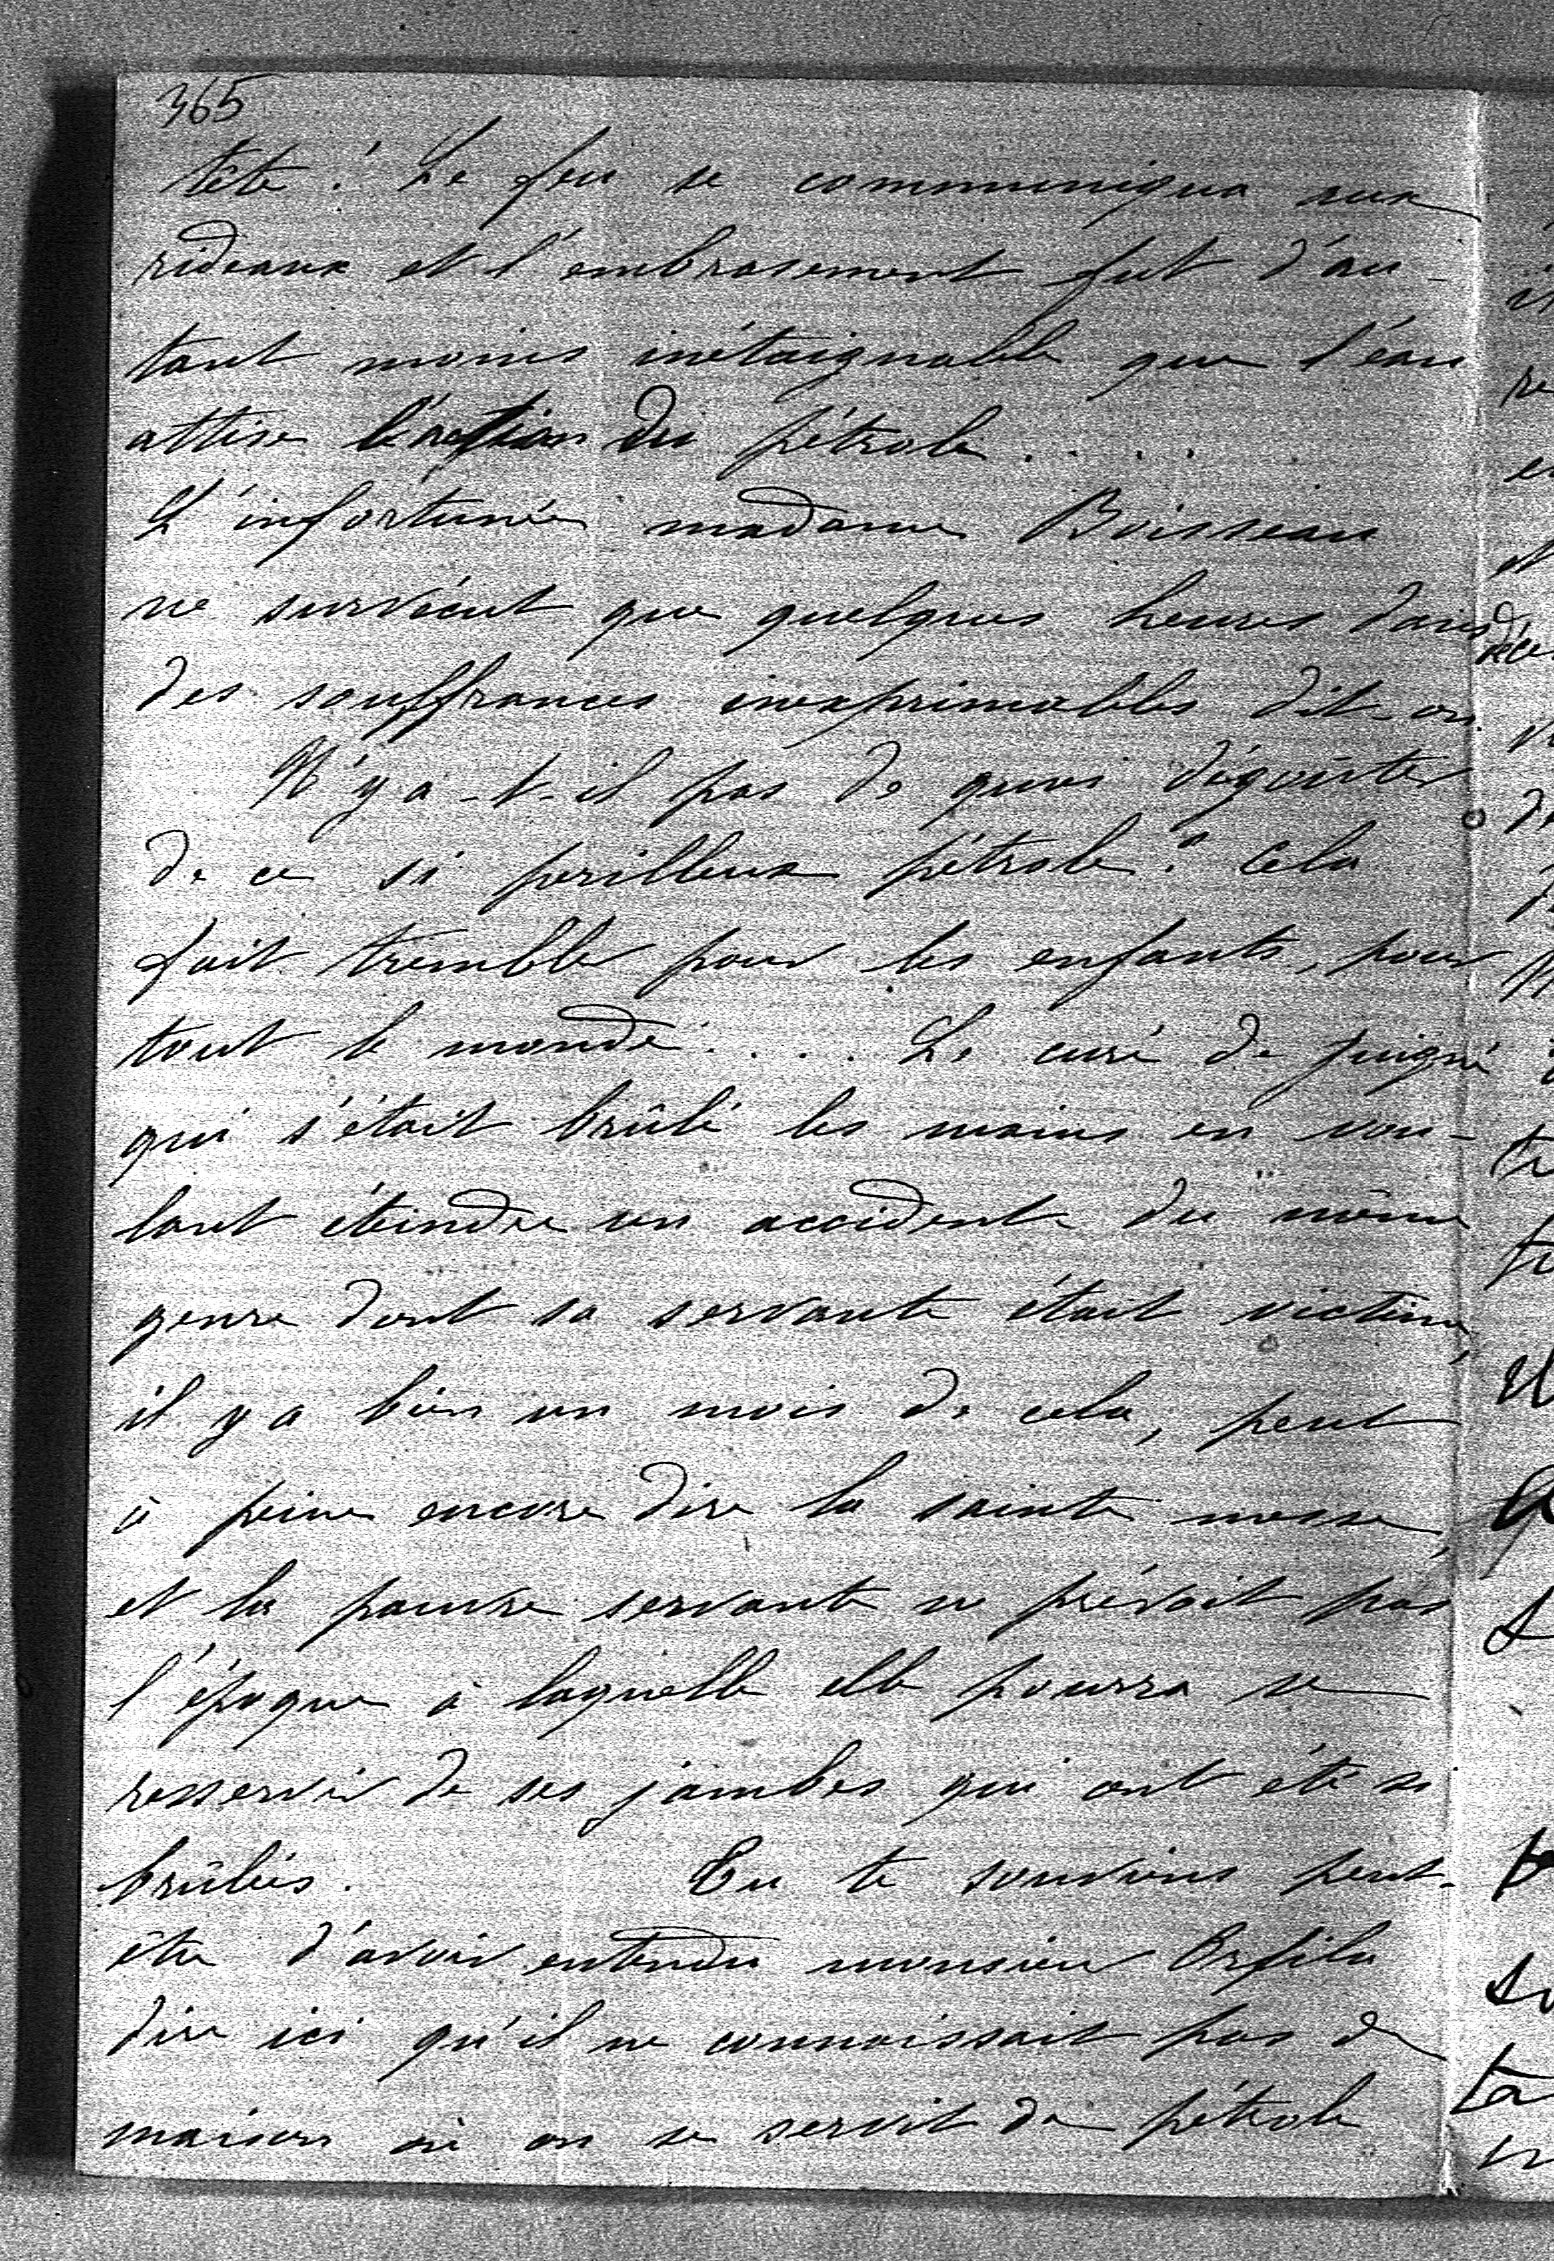 365
tête ! Le feu se communiqua aux
rideaux et l'embrasement fut d'au-
tant moins inétaignable que l'eau
attise l'action du pétrole . . . .
L'infortunée madame Boisseau
ne survécut que quelques heures dans
des souffrances inexprimables dit-on.
N'y a-t-il pas de quoi dégoûter
de ce si perilleux pétrole ? Cela
fait trembler pour les enfants, pour
tout le monde . . . . Le curé de juigné
qui s'était brûlé les mains en vou-
lant éteindre un accident du même
genre dont sa servante était victime,
il y a bien un mois de cela, peut
à peine encore dire la sainte messe,
et la pauvre servante ne prévoit pas
l'époque à laquelle elle pourra se
resservir de ses jambes qui ont été si
brûlées. Tu te souviens peut-
être d'avoir entendu monsieur Orfila
dire ici qu'il ne connaissait pas de
maison où on se servit de pétrole